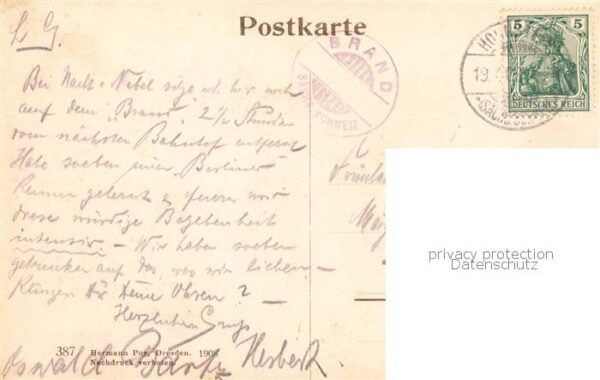 L. G.
Postkarte
BRAND
SCHWEIZ
5 5
DEUTSCHES REICH
19.
Bei Nacht u Nebel sitze ich hier noch
auf dem "Brand" 2½ Stunden
vom nächsten Bahnhof entfernt
Habe soeben einen "Berliner"
kennen gelernt u feiern wir
diese würdige Begebenheit
intensiv – Wir haben soeben
getrunken auf das, was wir lieben –
Klingen Dir Deine Ohren?
Herzlichen Gruß
Herbert
Oswald
387 Hermann Poy, Dresden. 1908
Nachdruck verboten
privacy protection
Datenschutz